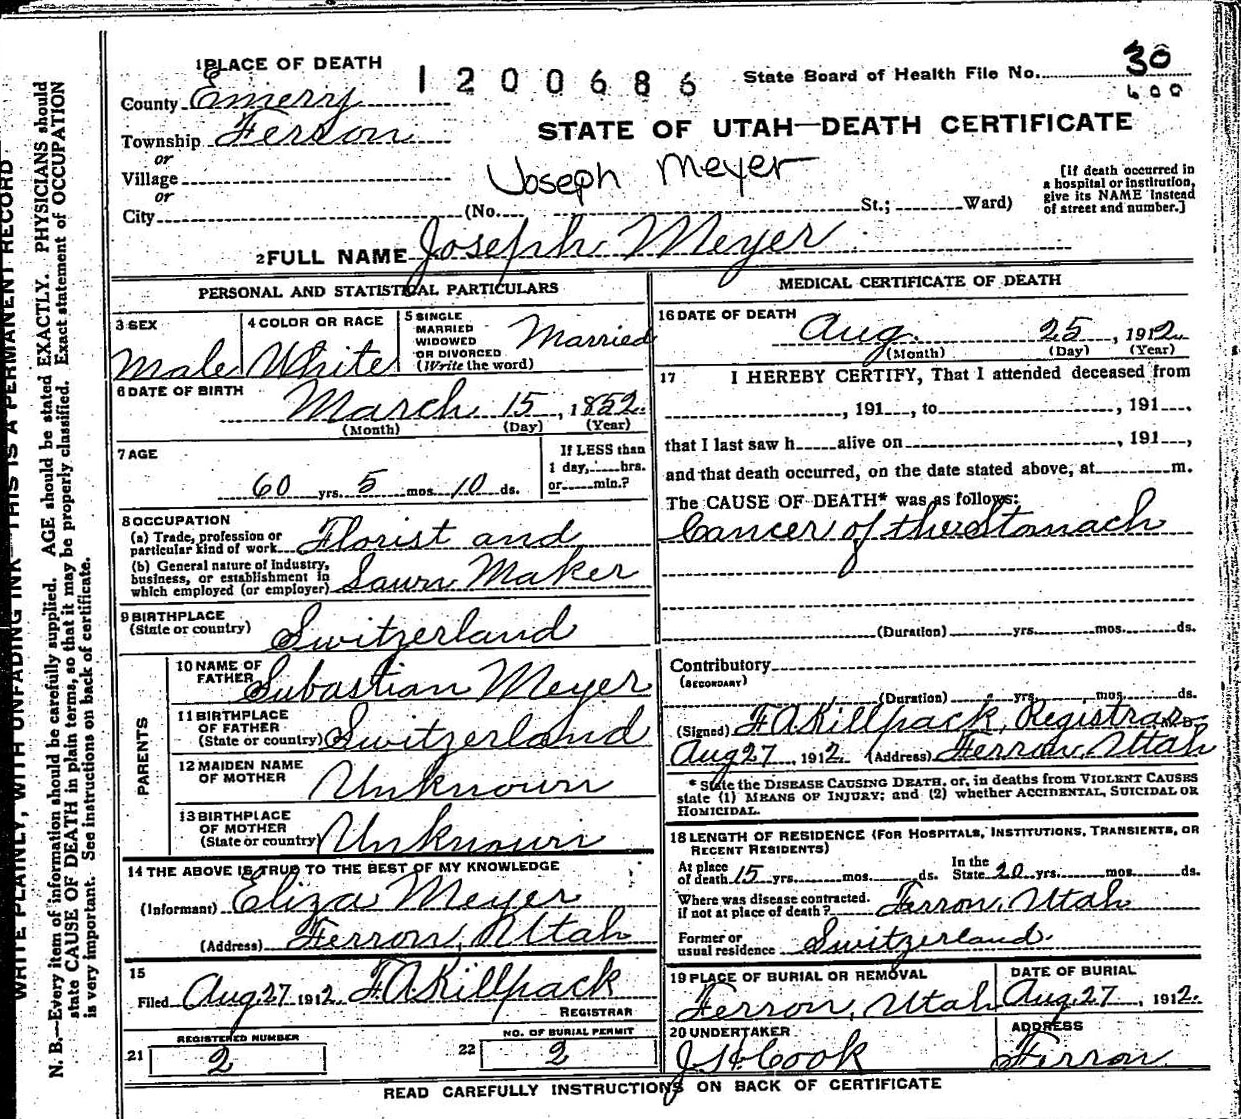 1 PLACE OF DEATH
1200686
State Board of Health File No. 30
600
County Emerry
Township Ferron
or
Village
or
City
STATE OF UTAH—DEATH CERTIFICATE
Joseph Meyer
(No. St.; Ward)
[If death occurred in
a hospital or institution,
give its NAME instead
of street and number.]
2 FULL NAME Joseph Meyer
PERSONAL AND STATISTICAL PARTICULARS
3 SEX
Male
4 COLOR OR RACE
White
5 SINGLE
MARRIED
WIDOWED
OR DIVORCED
(Write the word)
Married
6 DATE OF BIRTH
March 15, 1852.
(Month) (Day) (Year)
7 AGE
60 yrs. 5 mos. 10 ds.
If LESS than
1 day, hrs.
or min.?
8 OCCUPATION
(a) Trade, profession or
particular kind of work Florist and
(b) General nature of industry,
business, or establishment in
which employed (or employer) Lawn Maker
9 BIRTHPLACE
(State or country) Switzerland
PARENTS
10 NAME OF
FATHER Subastian Meyer
11 BIRTHPLACE
OF FATHER
(State or country) Switzerland
12 MAIDEN NAME
OF MOTHER Unknown
13 BIRTHPLACE
OF MOTHER
(State or country) Unknown
14 THE ABOVE IS TRUE TO THE BEST OF MY KNOWLEDGE
(Informant) Eliza Meyer
(Address) Ferron, Utah
15
Filed Aug 27 1912. F.A. Killpack
REGISTRAR
REGISTERED NUMBER
21 2
NO. OF BURIAL PERMIT
22 2
MEDICAL CERTIFICATE OF DEATH
16 DATE OF DEATH
Aug. 25, 1912
(Month) (Day) (Year)
17 I HEREBY CERTIFY, That I attended deceased from
, 191 , to , 191 ,
that I last saw h alive on , 191 ,
and that death occurred, on the date stated above, at m.
The CAUSE OF DEATH* was as follows:
Cancer of the Stomach
(Duration) yrs. mos. ds.
Contributory
(SECONDARY)
(Duration) yrs. mos. ds.
(Signed) F.A. Killpack, Registrar
Aug 27, 1912. (Address) Ferron, Utah
* State the DISEASE CAUSING DEATH, or, in deaths from VIOLENT CAUSES
state (1) MEANS OF INJURY; and (2) whether ACCIDENTAL, SUICIDAL OR
HOMICIDAL.
18 LENGTH OF RESIDENCE (FOR HOSPITALS, INSTITUTIONS, TRANSIENTS, OR
RECENT RESIDENTS)
At place
of death 15 yrs. mos. ds.
In the
State 20 yrs. mos. ds.
Where was disease contracted.
if not at place of death? Ferron, Utah
Former or
usual residence Switzerland
19 PLACE OF BURIAL OR REMOVAL
Ferron, Utah
DATE OF BURIAL
Aug 27, 1912.
20 UNDERTAKER
Cook
ADDRESS
Ferron
READ CAREFULLY INSTRUCTIONS ON BACK OF CERTIFICATE
WRITE PLAINLY, WITH UNFADING INK—THIS IS A PERMANENT RECORD
N. B.—Every item of information should be carefully supplied. AGE should be stated EXACTLY. PHYSICIANS should
state CAUSE OF DEATH in plain terms, so that it may be properly classified. Exact statement of OCCUPATION
is very important. See instructions on back of certificate.